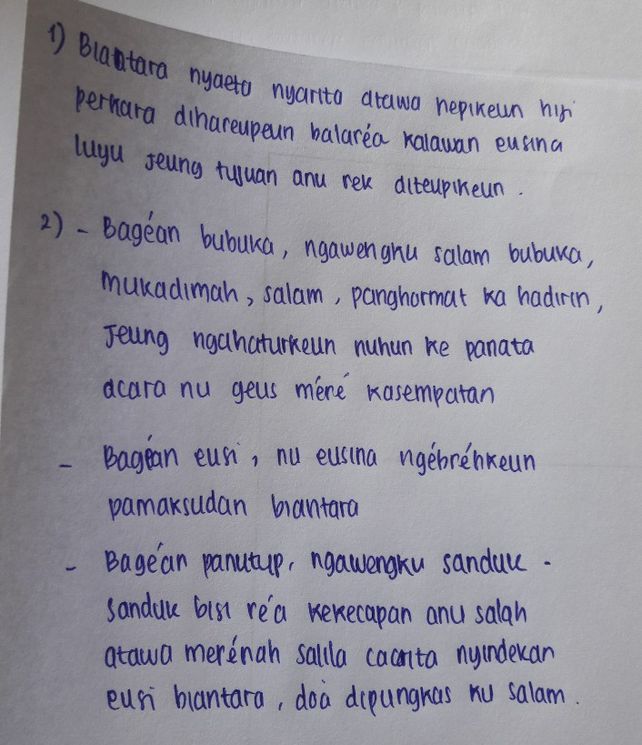 1) Biantara nyaeta nyarita atawa nepikeun hiji
perkara dihareupeun balaréa kalawan eusina
luyu jeung tujuan anu rek diteupikeun.
2) - Bagéan bubuka, ngawengku salam bubuka,
mukadimah, salam, panghormat ka hadirin,
jeung ngahaturkeun nuhun ke panata
acara nu geus méré kasempatan
- Bagéan eusi, nu eusina ngébréhkeun
pamaksudan biantara
- Bagéan panutup, ngawengku sanduk -
sanduk bisi réa kekecapan anu salah
atawa merénah salila cacarita nyindekan
eusi biantara, doa dipungkas ku salam.